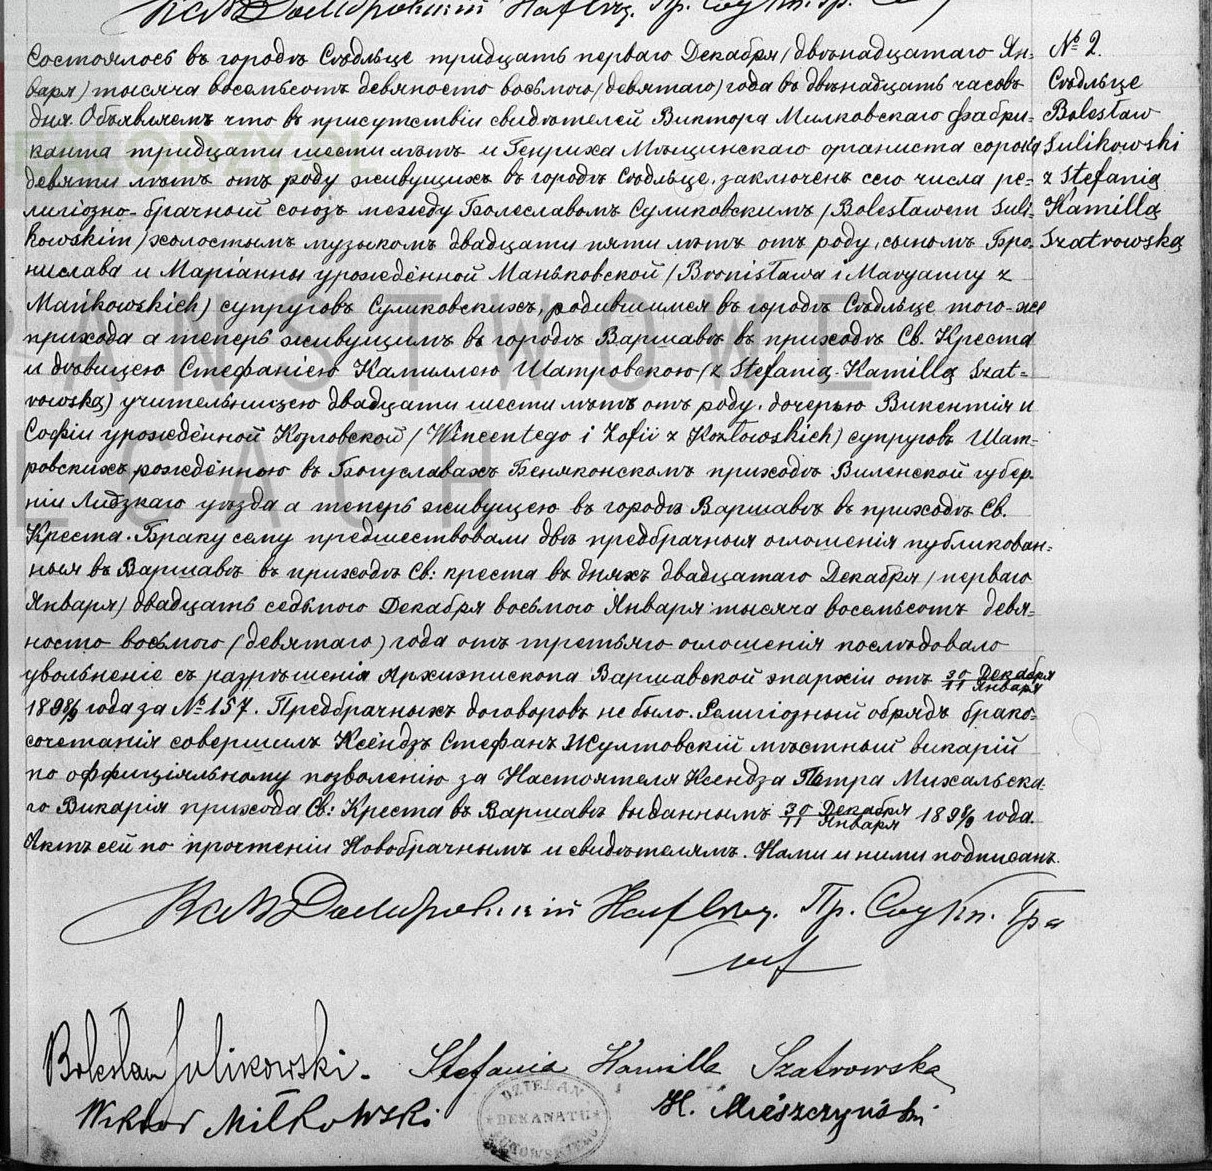 № 2.
Сѣдльце
Bolesław
Sulikowski
z Stefanią
Kamillą
Szatrowską
Состоялось въ городѣ Сѣдльце тридцать перваго Декабря /двѣнадцатаго Ян-
варя/ тысяча восемьсотъ девяносто восьмого /девятаго/ года въ двѣнадцать часовъ
дня. Объявляемъ что въ присутствіи свидѣтелей Виктора Милковскаго фабри-
канта тридцати шести лѣтъ и Генриха Мѣщинскаго органиста сорока
девяти лѣтъ отъ роду живущихъ въ городѣ Сѣдльце, заключенъ сего числа ре-
лигіозно-брачный союзъ между Болеславомъ Суликовскимъ /Bolesławem Suli-
kowskim/ холостымъ музыкомъ двадцати пяти лѣтъ отъ роду, сыномъ Бро-
нислава и Маріанны урождённой Маньковской /Bronisława i Maryanny z
Mańkowskich/ супруговъ Суликовскихъ, родившимся въ городѣ Сѣдльце того-же
прихода а теперь живущимъ въ городѣ Варшавѣ въ приходѣ Св. Креста
и дѣвицею Стефаніею Камиллею Шатровскою /z Stefanią Kamillą Szat-
rowską/ учительницею двадцати шести лѣтъ отъ роду, дочерью Викентія и
Софіи урождённой Козловской /Wincentego i Zofii z Kozłowskich/ супруговъ Шат-
ровскихъ, рождённою въ Богуславахъ Беняконскомъ приходѣ Виленской губер-
ніи Лидзкаго уѣзда а теперь живущею въ городѣ Варшавѣ въ приходѣ Св.
Креста. Браку сему предшествовали двѣ предбрачныя оглошенія публикован-
ныя въ Варшавѣ въ приходѣ Св: креста въ дняхъ двадцатаго Декабря /перваго
Января/ двадцать седьмого Декабря восьмого Января тысяча восемьсотъ девя-
носто восьмого (девятаго) года отъ третьяго оглошенія послѣдовало
увольненіе съ разрѣшенія Архиэпископа Варшавской эпархіи отъ 30 Декабря / 11 Января
1898/9 года за № 157. Предбрачныхъ договоровъ не было. Религіозный обрядъ брако-
сочетанія совершилъ Ксёндзъ Стефанъ Жултовскій мѣстный викарій
по оффиціяльному позволенію за Настоятеля Ксендза Петра Михальска-
го Викарія прихода Св: Креста въ Варшавѣ выданнымъ 30 Декабря / 11 Января 1898/9 года.
Актъ сей по прочтеніи Новобрачнымъ и свидѣтелямъ. Нами и ними подписанъ.
Bolesław Sulikowski. Stefania Kamilla Szatrowska
Wiktor Miłkowski H. Mieszczyński
DZIEKAN
DEKANATU